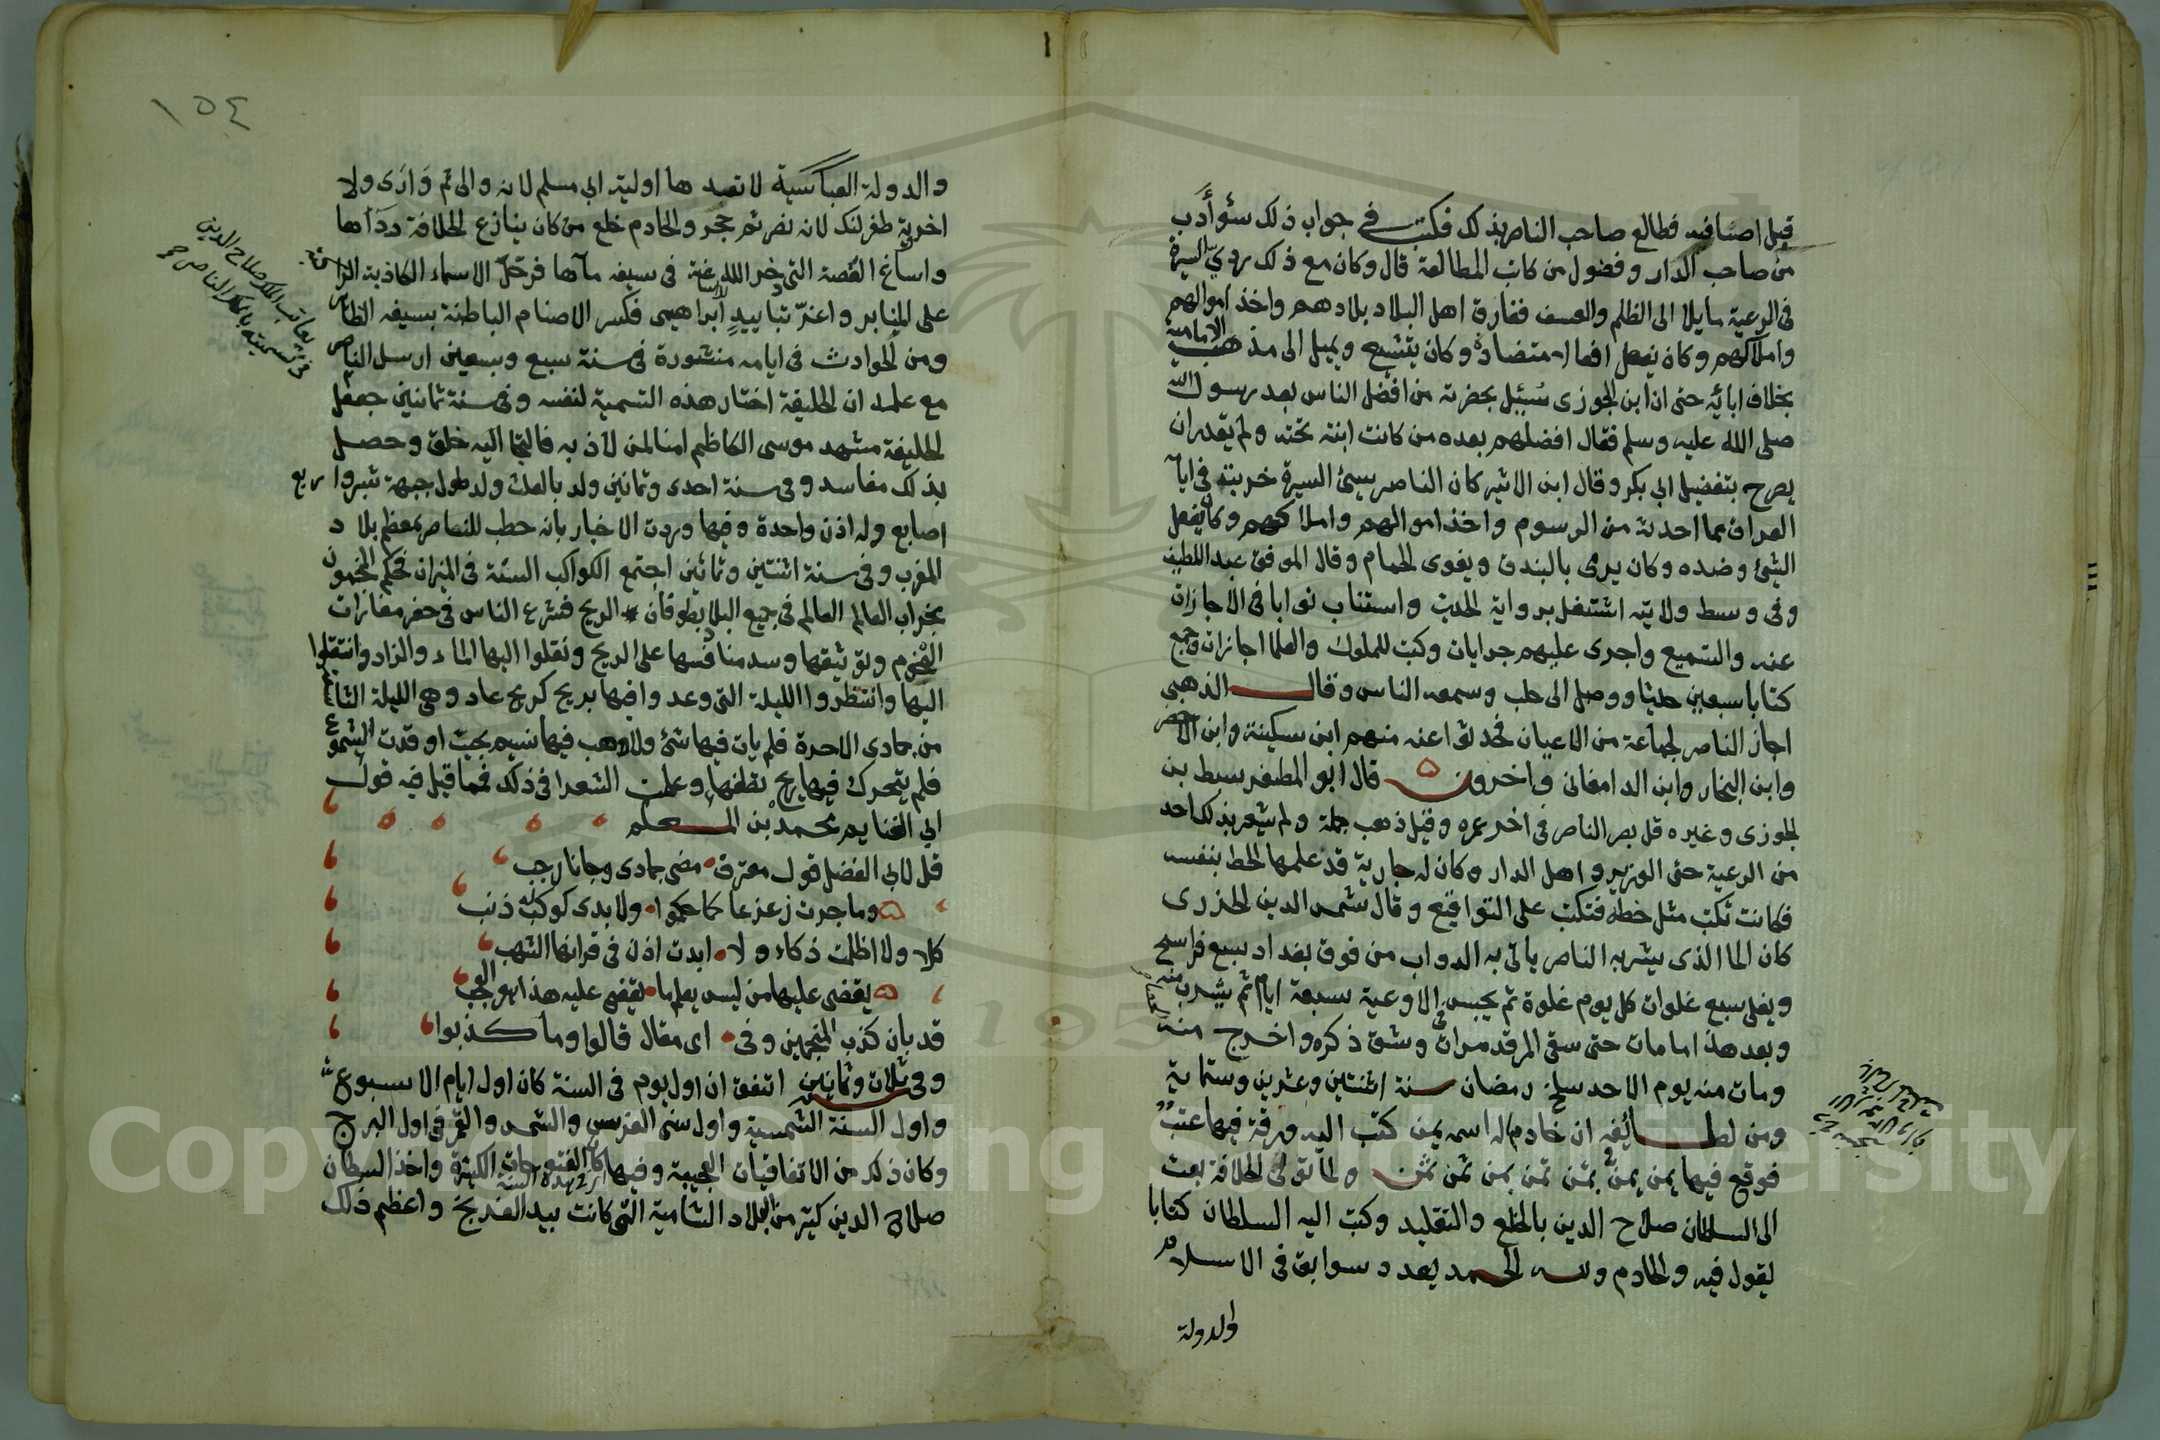 قبل اضيافه فطالع صاحب الناصر بذلك فكتب في جواب ذلك سئو أدب
من صاحب الدار وفضول من كاتب المطالعة قال وكان مع ذلك ردي السيرة
في الرعية مايلا الى الظلم والعسف ففارق اهل البلاد بلادهم واخذ اموالهم
واملاكهم وكان يفعل افعالا متضادة وكان يتشيع ويميل الى مذهب الامامية
بخلاف ابائه حتى ان ابن الجوزى سُئِل بحضرته من افضل الناس بعد رسول الله
صلى الله عليه وسلم فقال افضلهم بعده من كانت ابنته تحته ولم يقدر ان
يصرح بتفضيل ابي بكر وقال ابن الاثير كان الناصر سيئ السيرة خربت في ايامه
العراق مما احدثه من الرسوم واخذ اموالهم واملاكهم وكان يفعل
الشئ وضده وكان يرمى بالبندق ويغوى الحمام وقال الموفق عبد اللطيف
وفى وسط ولايته اشتغل برواية الحديث واستناب نوابا فى الاجازة
عنه والتسميع واجرى عليهم جرايات وكتب للملوك والعلما اجازات وجمع
كتابا سبعين حديثا ووصل الى حلب وسمعه الناس وقال الذهبى
اجاز الناصر لجماعة من الاعيان فحدثوا عنه منهم ابن سكينة وابن الاخضر
وابن النجار وابن الدامغانى واخرون ه قال ابو المظفر سبط بن
الجوزى وغيره قل بصر الناصر فى اخر عمره وقيل ذهب جملة ولم يشعر بذلك احد
من الرعية حتى الوزير واهل الدار وكان له جارية قد علمها الخط بنفسه
فكانت تكتب مثل خطه فتكتب على التواقيع وقال شمس الدين الجزرى
كان الما الذى يشربه الناصر ياتى به الدواب من فوق بغداد بسبع فراسخ
ويغلى سبع غلوات كل يوم غلوة ثم يحبس فى الاوعية سبعة ايام ثم يشرب منه
وبعد هذا ما مات حتى سقى المرقد مرات وشق ذكره واخرج منه
ومات منه يوم الاحد سلخ رمضان سنة اثنتين وعشرين وستماية
ومن لطائفه ان خادما له اسمه يمن كتب اليه ورقة فيها عتب
فوقع فيها بمن يمن بثمن ثمن ثمن ولما تولى الخلافة بعث
الى السلطان صلاح الدين بالخلع والتقليد وكتب اليه السلطان كتابا
يقول فيه والخادم ولله الحمد يعدد سوابق فى الاسلام
والدولة
١٥٤
والدولة العباسية لا تعدها اولية ابى مسلم لانه والى ثم وارى ولا
اخرية طغرلبك لانه نصر ثم حجر والخادم خلع من كان ينازع الخلافة رداها
واساغ الغصة التى ذخر الله للاساغة فى سيفه ماها فرحّل الاسماء الكاذبة الراكبة
على المنابر واعز بتاييدٍ ابراهيمى فكسر الاصنام الباطنة بسيفه الظاهر
يعاتب الملك صلاح الدين
فى تسميته بالملك الناصر
ومن الحوادث فى ايامه منشورة فى سنة سبع وسبعين ارسل الناصر
مع علمه ان الخليفة اختار هذه التسمية لنفسه وفى سنة ثمانين جعل
الخليفة مشهد موسى الكاظم امنا لمن لاذ به فالتجا اليه خلق وحصل
بذلك مفاسد وفى سنة احدى وثمانين ولد بالعلث ولد طول جبهته شبر واربع
اصابع وله اذن واحدة وفيها وردت الاخبار بانه خطب للناصر بمعظم بلاد
المغرب وفى سنة اثنتين وثمانين اجتمع الكواكب الستة فى الميزان فحكم المنجمون
بخراب العالم العالم فى جميع البلاد بطوفان الريح فشرع الناس فى حفر مغارات
التخوم وتوثيقها وسد منافسها على الريح ونقلوا اليها الماء والزاد وانتقلوا
اليها وانتظروا الليلة التى وعدوا فيها بريح كريح عاد وهى الليلة التاسعة
من جمادى الاخرة فلم يات فيها شئ ولا هب فيها نسيم بحيث اوقدت الشموع
فلم يتحرك فيها ريح تطفها وعملت الشعرا فى ذلك فمما قيل فيه قول
ابي الغنايم محمد بن المعلم
قل لابى الفضل قول معترف مضى جمادى وجانا رجب
وما جرت زعزعا كما حكموا ولا بدى كوكب له ذنب
كلا ولا اظلمت ذكاء ولا ابدت اذن فى قرانها الشهب
يقضى عليها من ليس يعلم ما يقضى عليه هذا هو العجب
قد بان كذب المنجمين وفى اى مقال قالوا وما كذبوا
وفى ثلاث وثمانين اتفق ان اول يوم فى السنة كان اول ايام الاسبوع
واول السنة الشمسية واول سنى الفرس والشمس والقمر فى اول البرج
وكان ذلك من الاتفاقيات العجيبة وفيها كان الفتوحات الكثيرة واخذ السلطان
صلاح الدين كثير من البلاد الشامية التى كانت بيد الفرنج واعظم ذلك
Copy @ King Saud University
195